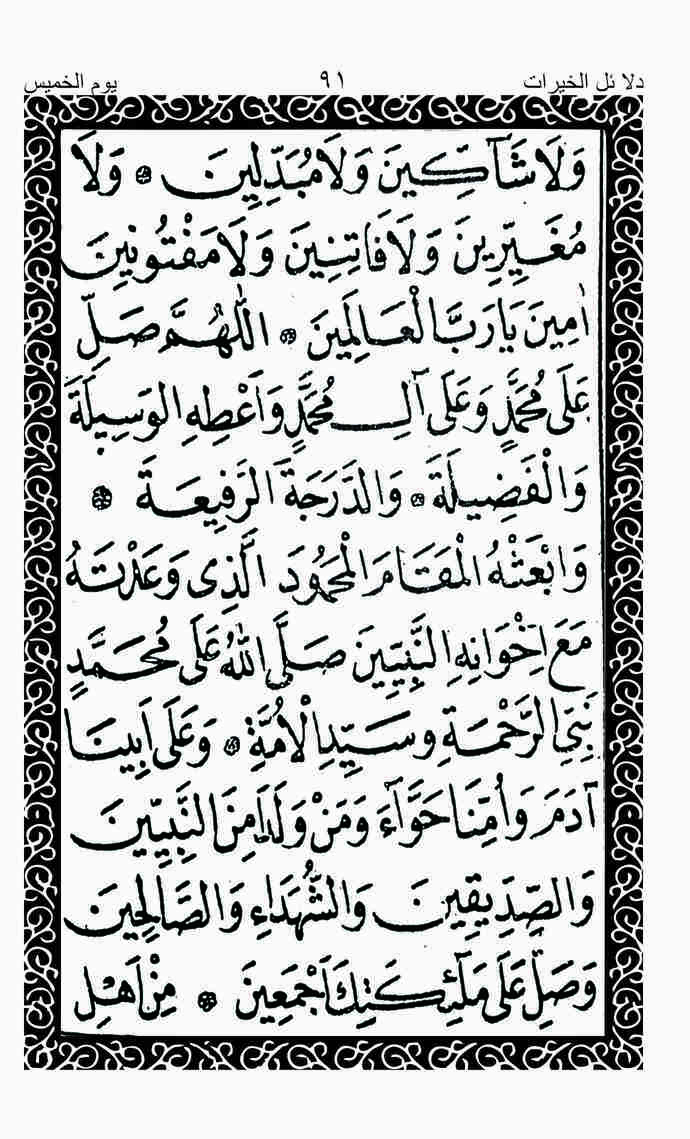 دلائل الخيرات ٩١ يوم الخميس
وَلَا شَآكِّينَ وَلَا مُبَدِّلِينَ ۞ وَلَا
مُغَيِّرِينَ وَلَا فَاتِنِينَ وَلَا مَفْتُونِينَ
اٰمِينَ يَا رَبَّ الْعَالَمِينَ ۞ اَللّٰهُمَّ صَلِّ
عَلَى مُحَمَّدٍ وَعَلَى آلِ مُحَمَّدٍ وَاَعْطِهِ الْوَسِيلَةَ
وَالْفَضِيلَةَ ۞ وَالدَّرَجَةَ الرَّفِيعَةَ ۞
وَابْعَثْهُ الْمَقَامَ الْمَحْمُودَ الَّذِى وَعَدْتَهُ
مَعَ اِخْوَانِهِ النَّبِيِّينَ صَلَّى اللّٰهُ عَلَى مُحَمَّدٍ
نَبِيِّ الرَّحْمَةِ وَسَيِّدِ الْاُمَّةِ ۞ وَعَلَى اَبِينَا
آدَمَ وَاُمِّنَا حَوَّآءَ وَمَنْ وَلَدَا مِنَ النَّبِيِّينَ
وَالصِّدِّيقِينَ وَالشُّهَدَاءِ وَالصَّالِحِينَ
وَصَلِّ عَلَى مَلٰٓئِكَتِكَ اَجْمَعِينَ ۞ مِنْ اَهْلِ